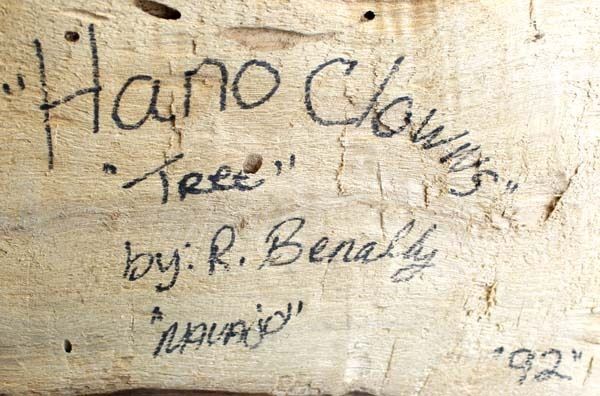 "Hano Clowns"
"Tree"
by: R. Benally
"NAVAJO"
"92"